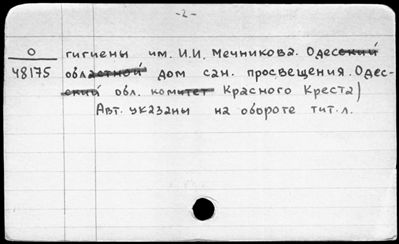 -2-
О гигиены им. И.И. Мечникова. Одесский
48175 областной дом сан. просвещения. Одес-
ский обл. комитет Красного Креста)
Авт. указаны на обороте тит. л.